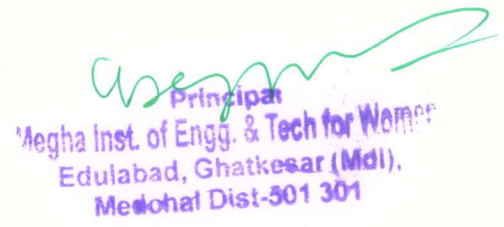 Principal
Megha Inst. of Engg. & Tech for Women
Edulabad, Ghatkesar (Mdl),
Medchal Dist-501 301